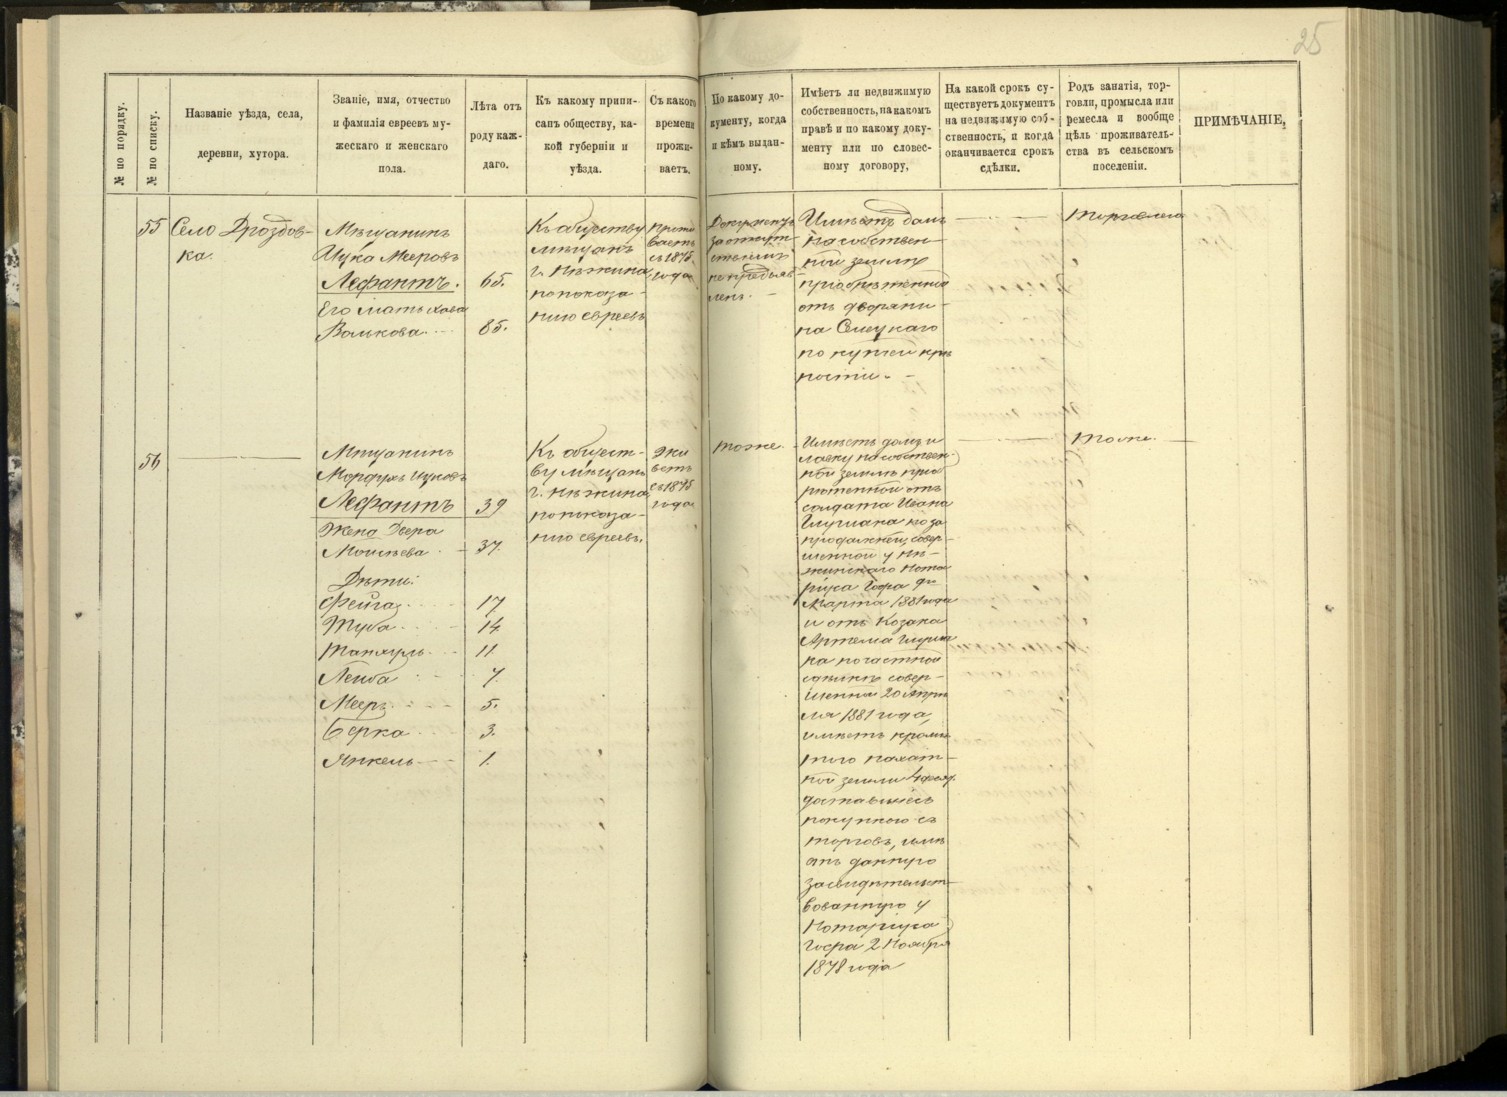 25
№ по порядку.
№ по списку.
Названіе уѣзда, села,
деревни, хутора.
Званіе, имя, отчество
и фамилія евреевъ му-
жескаго и женскаго
пола.
Лѣта отъ
роду каж-
даго.
Къ какому припи-
санъ обществу, ка-
кой губерніи и
уѣзда.
Съ какого
времени
прожи-
ваетъ.
По какому до-
кументу, когда
и кѣмъ выдан-
ному.
Имѣетъ ли недвижимую
собственность, на какомъ
правѣ и по какому доку-
менту или по словес-
ному договору.
На какой срокъ су-
ществуетъ документъ
на недвижимую соб-
ственность, и когда
оканчивается срокъ
сдѣлки.
Родъ занятія, тор-
говли, промысла или
ремесла и вообще
цѣль проживатель-
ства въ сельскомъ
поселеніи.
ПРИМѢЧАНІЕ.
55
Село Дроздов-
ка.
Мѣщанинъ
Ицка Мееровъ
Лефантъ. 65.
Его мать Хава
Волькова 85.
Къ обществу
мѣщанъ
г. Нѣжина
по показа-
нію евреевъ
Прожи
ваетъ
съ 1875
года
Документъ
за отсут-
ствіемъ
не предъяв-
ленъ.
Имѣетъ домъ
на собствен-
ной землѣ
пріобрѣтенной
отъ дворяни-
на Селецкаго
по купчей крѣ
пости.
торговля
56
Мѣщанинъ
Мордухъ Ицковъ
Лефантъ 39
Жена Двера
Моисѣева 37.
Дѣти:
Фейга 17
Туба 14
Танхумъ 11
Лейба 7.
Мееръ 5.
Берка 3.
Янкель 1.
Къ общест-
ву мѣщанъ
г. Нѣжина,
по показа-
нію евреевъ.
Жи
ветъ
съ 1875
года
тоже.
Имѣетъ домъ и
лавку на собствен-
ной землѣ прiоб
рѣтенной отъ
солдата Ивана
продажной, совер-
шенной у Нѣ-
жинскаго Нота
ріуса Гофа
Марта 1881 года
и отъ Козака
Артема
по частной
сдѣлкѣ совер-
шенной 20 Апрѣ
ля 1881 года,
имѣетъ кромѣ
того пахат-
ной земли 4 дес.
доставшiесь
покупкою съ
торговъ, имѣ
етъ данную
засвидѣтельст-
вованную у
Нотаріуса
Гофа 2 Ноября
1878 года
тоже.